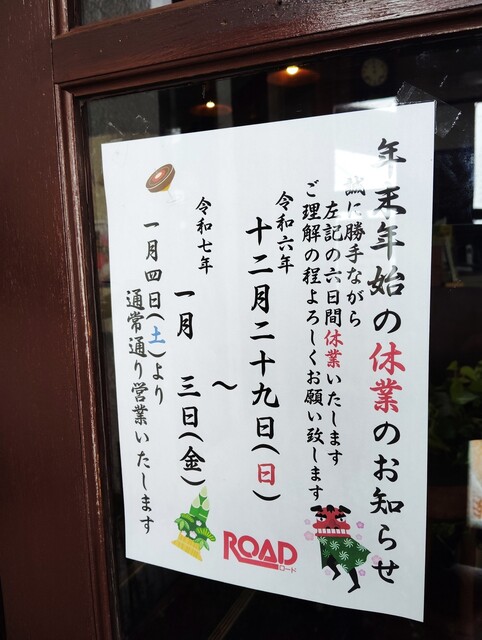 年末年始の休業のお知らせ
誠に勝手ながら
左記の六日間休業いたします
ご理解の程よろしくお願い致します
令和六年
十二月二十九日(日)
～
令和七年
一月 三日(金)
一月四日(土)より
通常通り営業いたします
ROAD
ロード